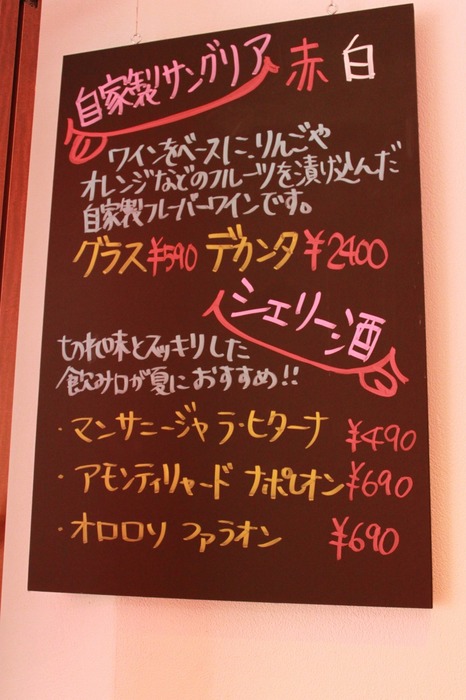 自家製サングリア 赤 白
ワインをベースに、りんごや
オレンジなどのフルーツを漬け込んだ
自家製フレーバーワインです。
グラス¥590 デカンタ ¥2400
シェリー酒
切れ味とスッキリした
飲み口が夏におすすめ!!
・マンサニージャ ラ・ヒターナ ¥490
・アモンティリャード ナポレオン ¥690
・オロロソ ファラオン ¥690